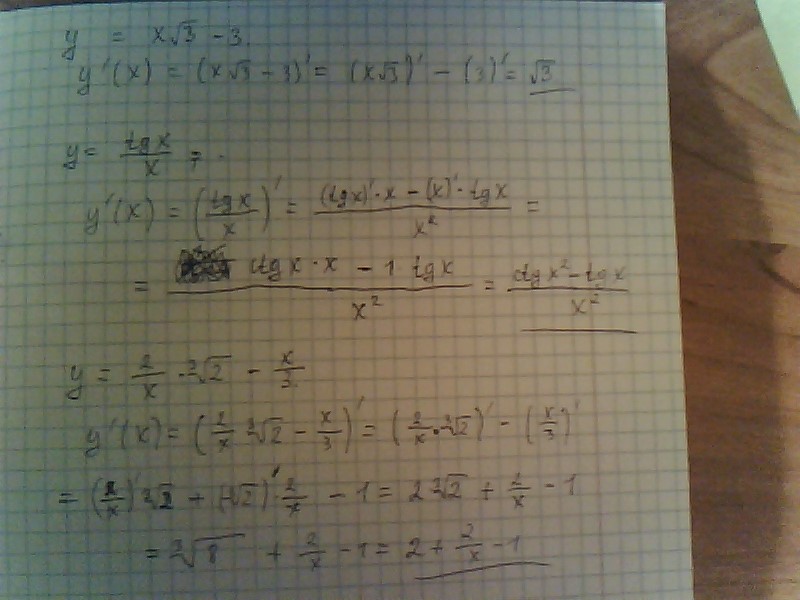 y = x√3 - 3.
y'(x) = (x√3 - 3)' = (x√3)' - (3)' = √3
y = tgx/x = .
y'(x) = (tgx/x)' = ((tgx)'·x - (x)'·tgx)/x² =
= (ctgx·x - 1 tgx)/x² = (ctgx² - tgx)/x²
y = 2/x · ³√2 - x/3
y'(x) = (2/x ³√2 - x/3)' = (2/x·³√2)' - (x/3)'
= (2/x)' ³√2 + (³√2)'·2/x - 1 = 2³√2 + 2/x - 1
= ³√8 + 2/x - 1 = 2 + 2/x - 1